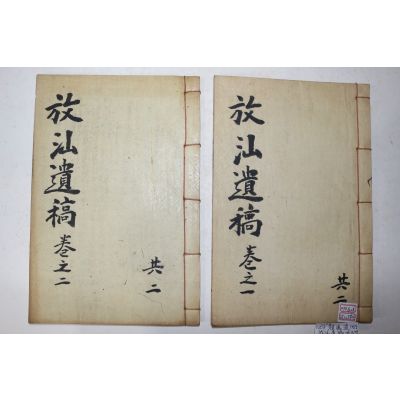 放汕遺稿 卷之二
共二
放汕遺稿 卷之一
共二